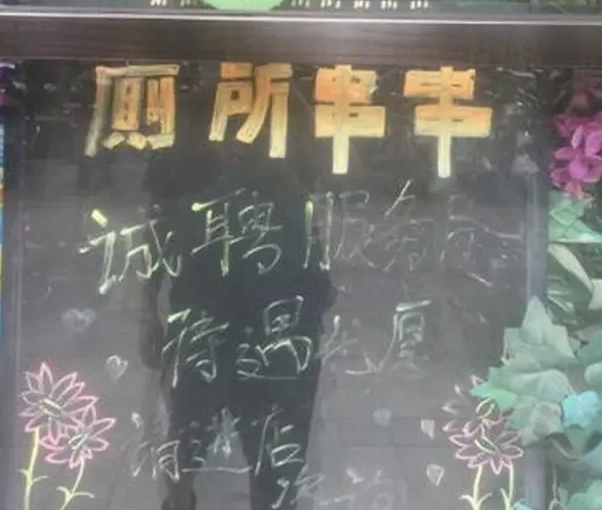 厕所串串
诚聘服务员
待遇优厚
请进店
咨询